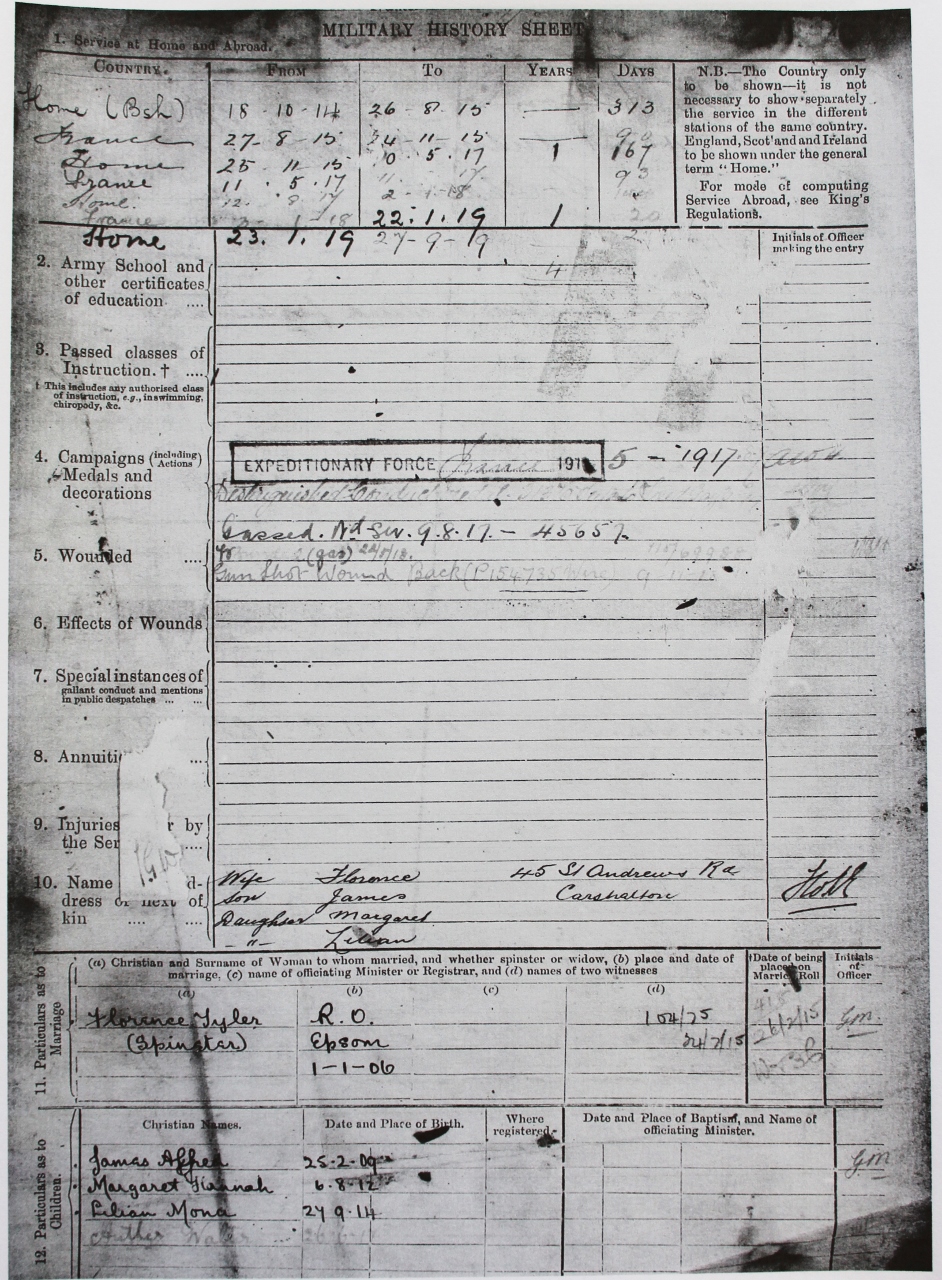 MILITARY HISTORY SHEET
1. Service at Home and Abroad.
COUNTRY. FROM TO YEARS DAYS
Home (Bsh) 18 - 10 - 14 26 - 8 - 15 — 313
France 27 - 8 - 15 24 - 11 - 15 — 90
Home 25 11 15 10 . 5 . 17 1 167
France 11 . 5 . 17 93
Home. 12. 8 17 2 - 1 - 18
France 3 - 1 18 22.1.19 1 20
Home 23. 1. 19 27-9-19
4
N.B.—The Country only
to be shown—it is not
necessary to show separately
the service in the different
stations of the same country.
England, Scot'and and Ireland
to be shown under the general
term "Home."
For mode of computing
Service Abroad, see King's
Regulations.
Initials of Officer
making the entry
2. Army School and
other certificates
of education ....
3. Passed classes of
Instruction. † ....
† This includes any authorised class
of instruction, e.g., in swimming,
chiropody, &c.
4. Campaigns (including Actions)
Medals and
decorations
EXPEDITIONARY FORCE France 191 5 - 1917
Distinguished Conduct
Gassed. Nd Sev. 9.8.17. - 45657.
5. Wounded ....
(gas)
Gun Shot Wound Back (P154735 Wing) 9
6. Effects of Wounds
7. Special instances of
gallant conduct and mentions
in public despatches ... ...
8. Annuiti ....
9. Injuries r by
the Ser ....
10. Name d-
dress or next of
kin .... ....
Wife Florence 45 St Andrews Rd
Son James Carshalton
Daughter Margaret
- " - Lilian
11. Particulars as to
Marriage
(a) Christian and Surname of Woman to whom married, and whether spinster or widow, (b) place and date of
marriage, (c) name of officiating Minister or Registrar, and (d) names of two witnesses
†Date of being
placed on
Married Roll
Initials
of
Officer
(a) (b) (c) (d)
Florence Tyler R.O. 104/25 26/2/15 Gm.
(Spinster) Epsom 24/2/15
1-1-06
12. Particulars as to
Children.
Christian Names. Date and Place of Birth. Where
registered. Date and Place of Baptism, and Name of
officiating Minister.
James Alfred 25-2-09 Gm
Margaret Hannah 6.8.12
Lilian Mona 27 9.14